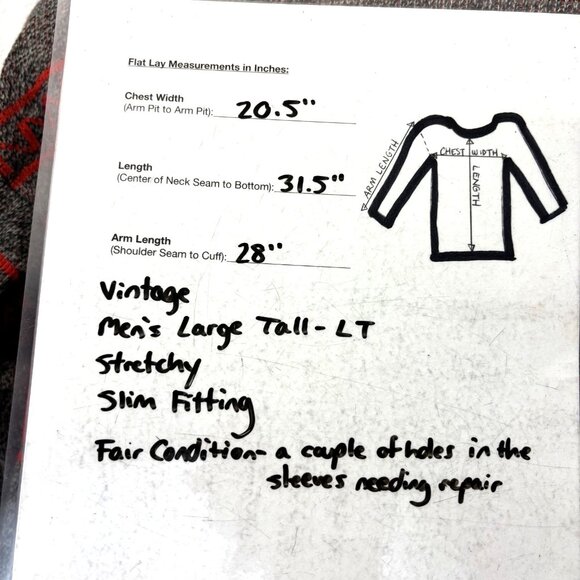 Flat Lay Measurements in Inches:
Chest Width
(Arm Pit to Arm Pit): 20.5"
Length
(Center of Neck Seam to Bottom): 31.5"
Arm Length
(Shoulder Seam to Cuff): 28"
ARM LENGTH
CHEST WIDTH
LENGTH
Vintage
Men's Large Tall - LT
Stretchy
Slim Fitting
Fair Condition- a couple of holes in the
sleeves needing repair